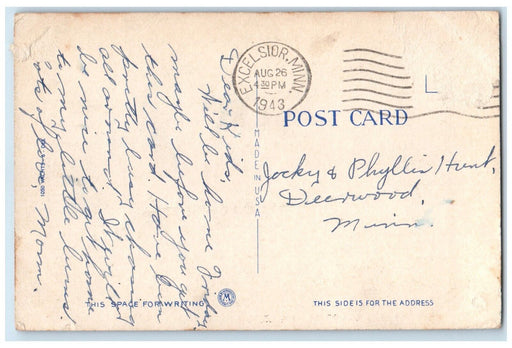 Dear Kids,
Will be home Friday,
maybe before you get
this card. Have been
pretty busy chasing
all around. It will
be nice to get home
to my little
Lots of Mom.
EXCELSIOR, MINN
AUG 26
4 30 PM
1943
L
POST CARD
MADE IN U.S.A
Jacky & Phyllis Hunt,
Deerwood,
Minn.
THIS SPACE FOR WRITING
M
THIS SIDE IS FOR THE ADDRESS